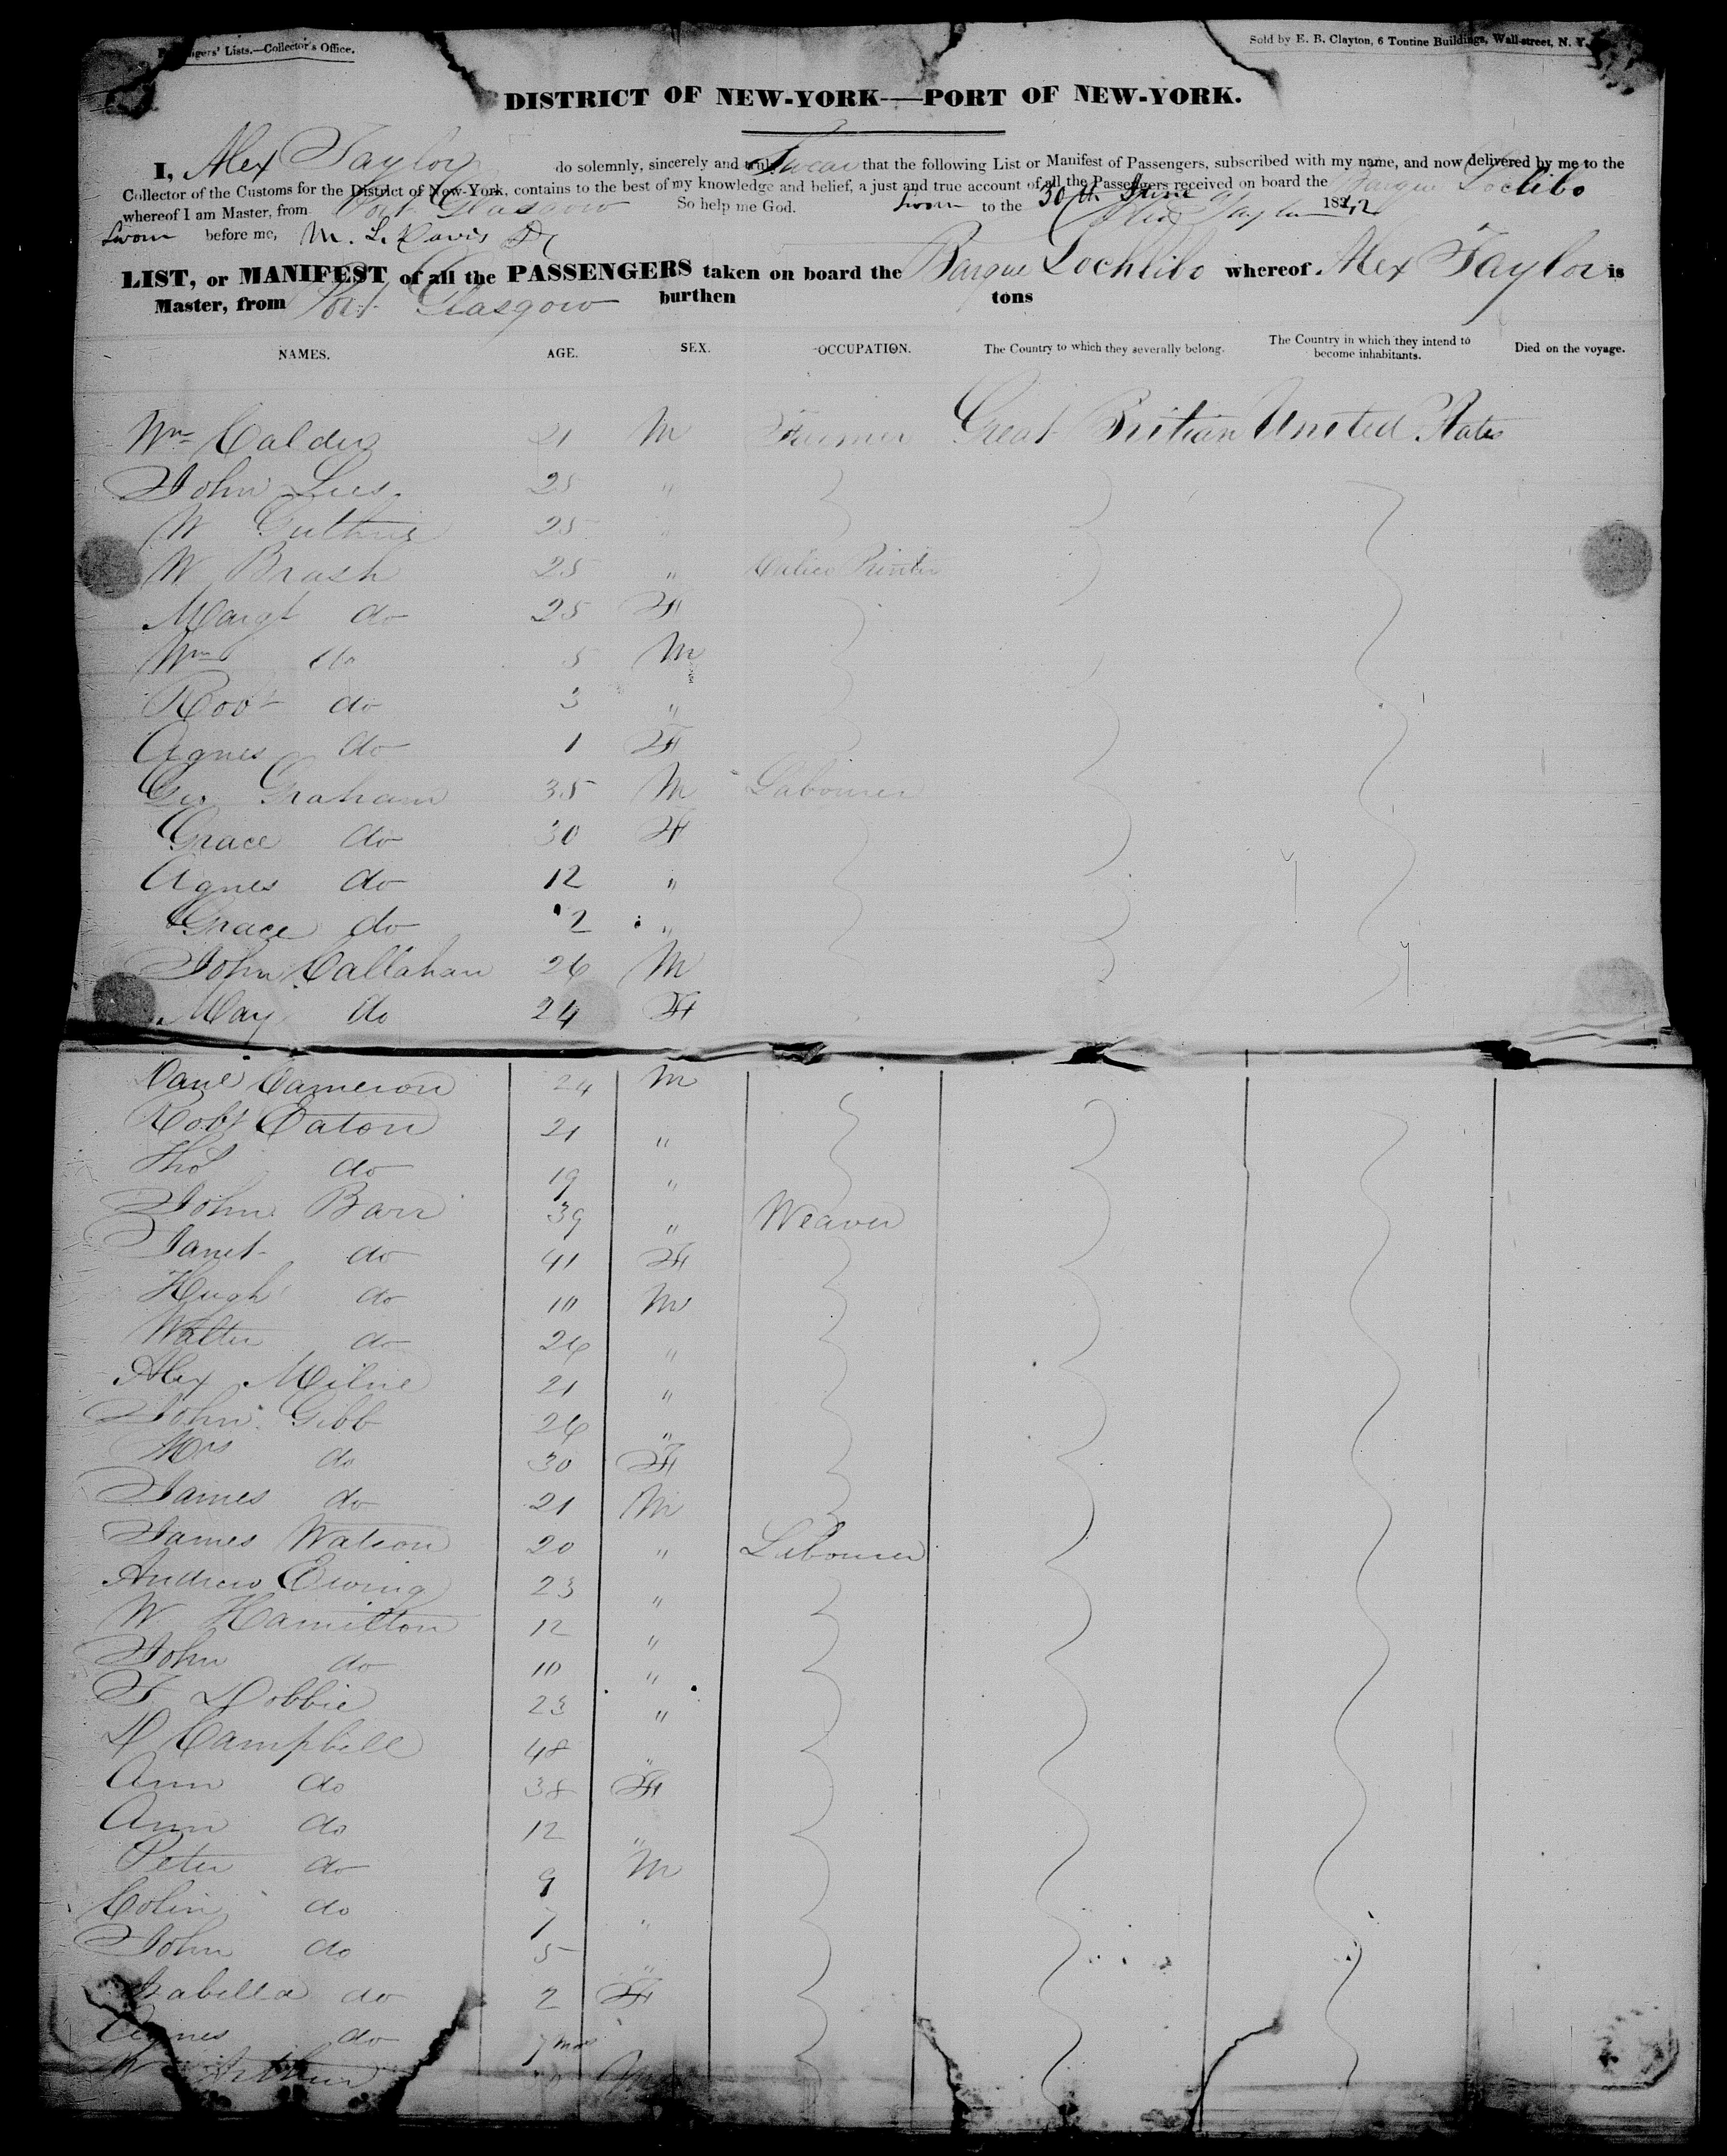 Passengers' Lists.—Collector's Office.
Sold by E. B. Clayton, 6 Tontine Buildings, Wall-street, N. Y.
DISTRICT OF NEW-YORK—PORT OF NEW-YORK.
I, Alex Taylor do solemnly, sincerely and truly Swear that the following List or Manifest of Passengers, subscribed with my name, and now delivered by me to the
Collector of the Customs for the District of New-York, contains to the best of my knowledge and belief, a just and true account of all the Passengers received on board the Barque Lochlibo
whereof I am Master, from Port Glasgow So help me God. Sworn to the 30th June 1842
Alex Taylor
Sworn before me, M. L. Davis
LIST, or MANIFEST of all the PASSENGERS taken on board the Barque Lochlibo whereof Alex Taylor is
Master, from Port Glasgow burthen tons
NAMES. AGE. SEX. OCCUPATION. The Country to which they severally belong. The Country in which they intend to become inhabitants. Died on the voyage.
Wm Calder 21 M Farmer Great Britian United States
John Lees 25 "
W Guthrie 25 "
W Brash 25 " Calico Printer
Margt do 25 F
Wm do 5 M
Robt do 3 "
Agnes do 1 F
Geo Graham 35 M Labourer
Grace do 30 F
Agnes do 12 "
Grace do 2 "
John Callahan 26 M
May do 24 F
Danl Cameron 24 M
Robt Eaton 21 "
Thos do 19 "
John Barr 39 " Weaver
Janet do 41 F
Hugh do 10 M
Walter do 26 "
Alex Milne 21 "
John Gibb 26 "
Mrs do 30 F
James do 21 M
James Watson 20 " Labourer
Andrew Ewing 23 "
W Hamilton 12 "
John do 10 "
T Dobbie 23 "
D Campbell 48 "
Ann do 38 F
Ann do 12 "
Peter do 9 M
Colin do 7 "
John do 5 "
Isabella do 2 F
Agnes do 7 mos
W Arthur M